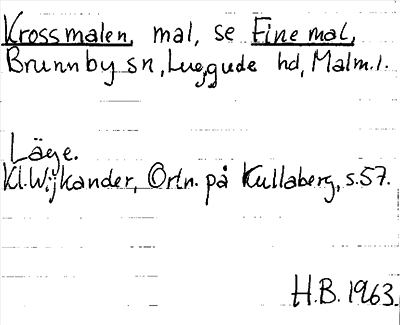 Krossmalen, mal, se Fine mal,
Brunnby sn, Luggude hd, Malm. l.
Läge.
Kl. Wijkander, Ortn. på Kullaberg, s. 57.
H.B. 1963.